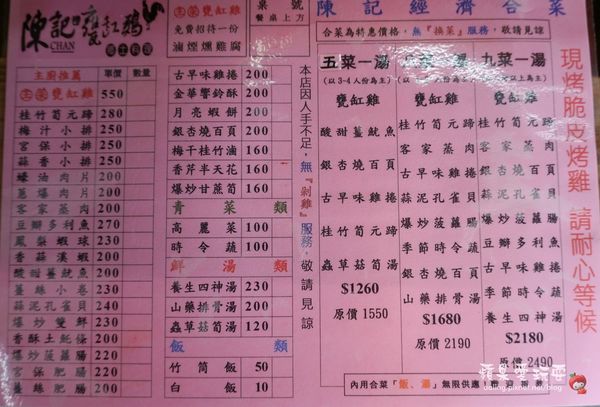 陳記甕缸雞
CHAN
主廚推薦 單價 數量
550
桂竹筍元蹄 280
梅汁小排 240
宮保小排 240
蒜香小排 240
蠔油肉片 210
蔥爆肉片 210
客家蒸肉 210
豆瓣多利魚 270
鳳梨蝦球 230
香蒜溪蝦 220
酸甜薑魷魚 210
薑絲小卷 230
蒜泥孔雀貝 240
爆炒雙鮮 230
香酥土魠條 220
爆炒菠蘿腸 220
宮保肥腸 220
薑絲肥腸 200
甕缸雞
免費招待一份
滷煙燻雞腐
桌號
餐桌上方
古早味雞捲 200
金華響鈴酥 200
月亮蝦餅 200
銀杏燒百頁 200
梅干桂竹滷 160
香芹半天花 160
爆炒甘蔗筍 160
青菜類
高麗菜 100
時令蔬 100
鮮湯類
養生四神湯 230
山藥排骨湯 200
蟲草菇筍湯 200
飯類
竹筒飯 50
白飯 10
本店因人手不足，無『剁雞』服務，敬請見諒
陳記經濟合菜
合菜為特惠價格，無『換菜』服務，敬請見諒
五菜一湯
(以3-4人份為主)
甕缸雞
酸甜薑魷魚
銀杏燒百頁
古早味雞捲
時令蔬
蟲草菇筍湯
$1260
原價 1550
菜一湯
人份為主)
甕缸雞
桂竹筍元蹄
客家蒸肉
蒜泥孔雀貝
爆炒菠蘿腸
季節時蔬
銀杏燒百頁
山藥排骨湯
$1680
原價 2190
九菜一湯
以上為主)
甕缸雞
桂竹筍元蹄
客家蒸肉
蒜泥孔雀貝
爆炒菠蘿腸
豆瓣多利魚
古早味雞捲
銀杏燒百頁
季節時蔬
養生四神湯
$2180
原價 2490
內用合菜「飯、湯」無限供應！歡迎
現烤脆皮烤雞 請耐心等候